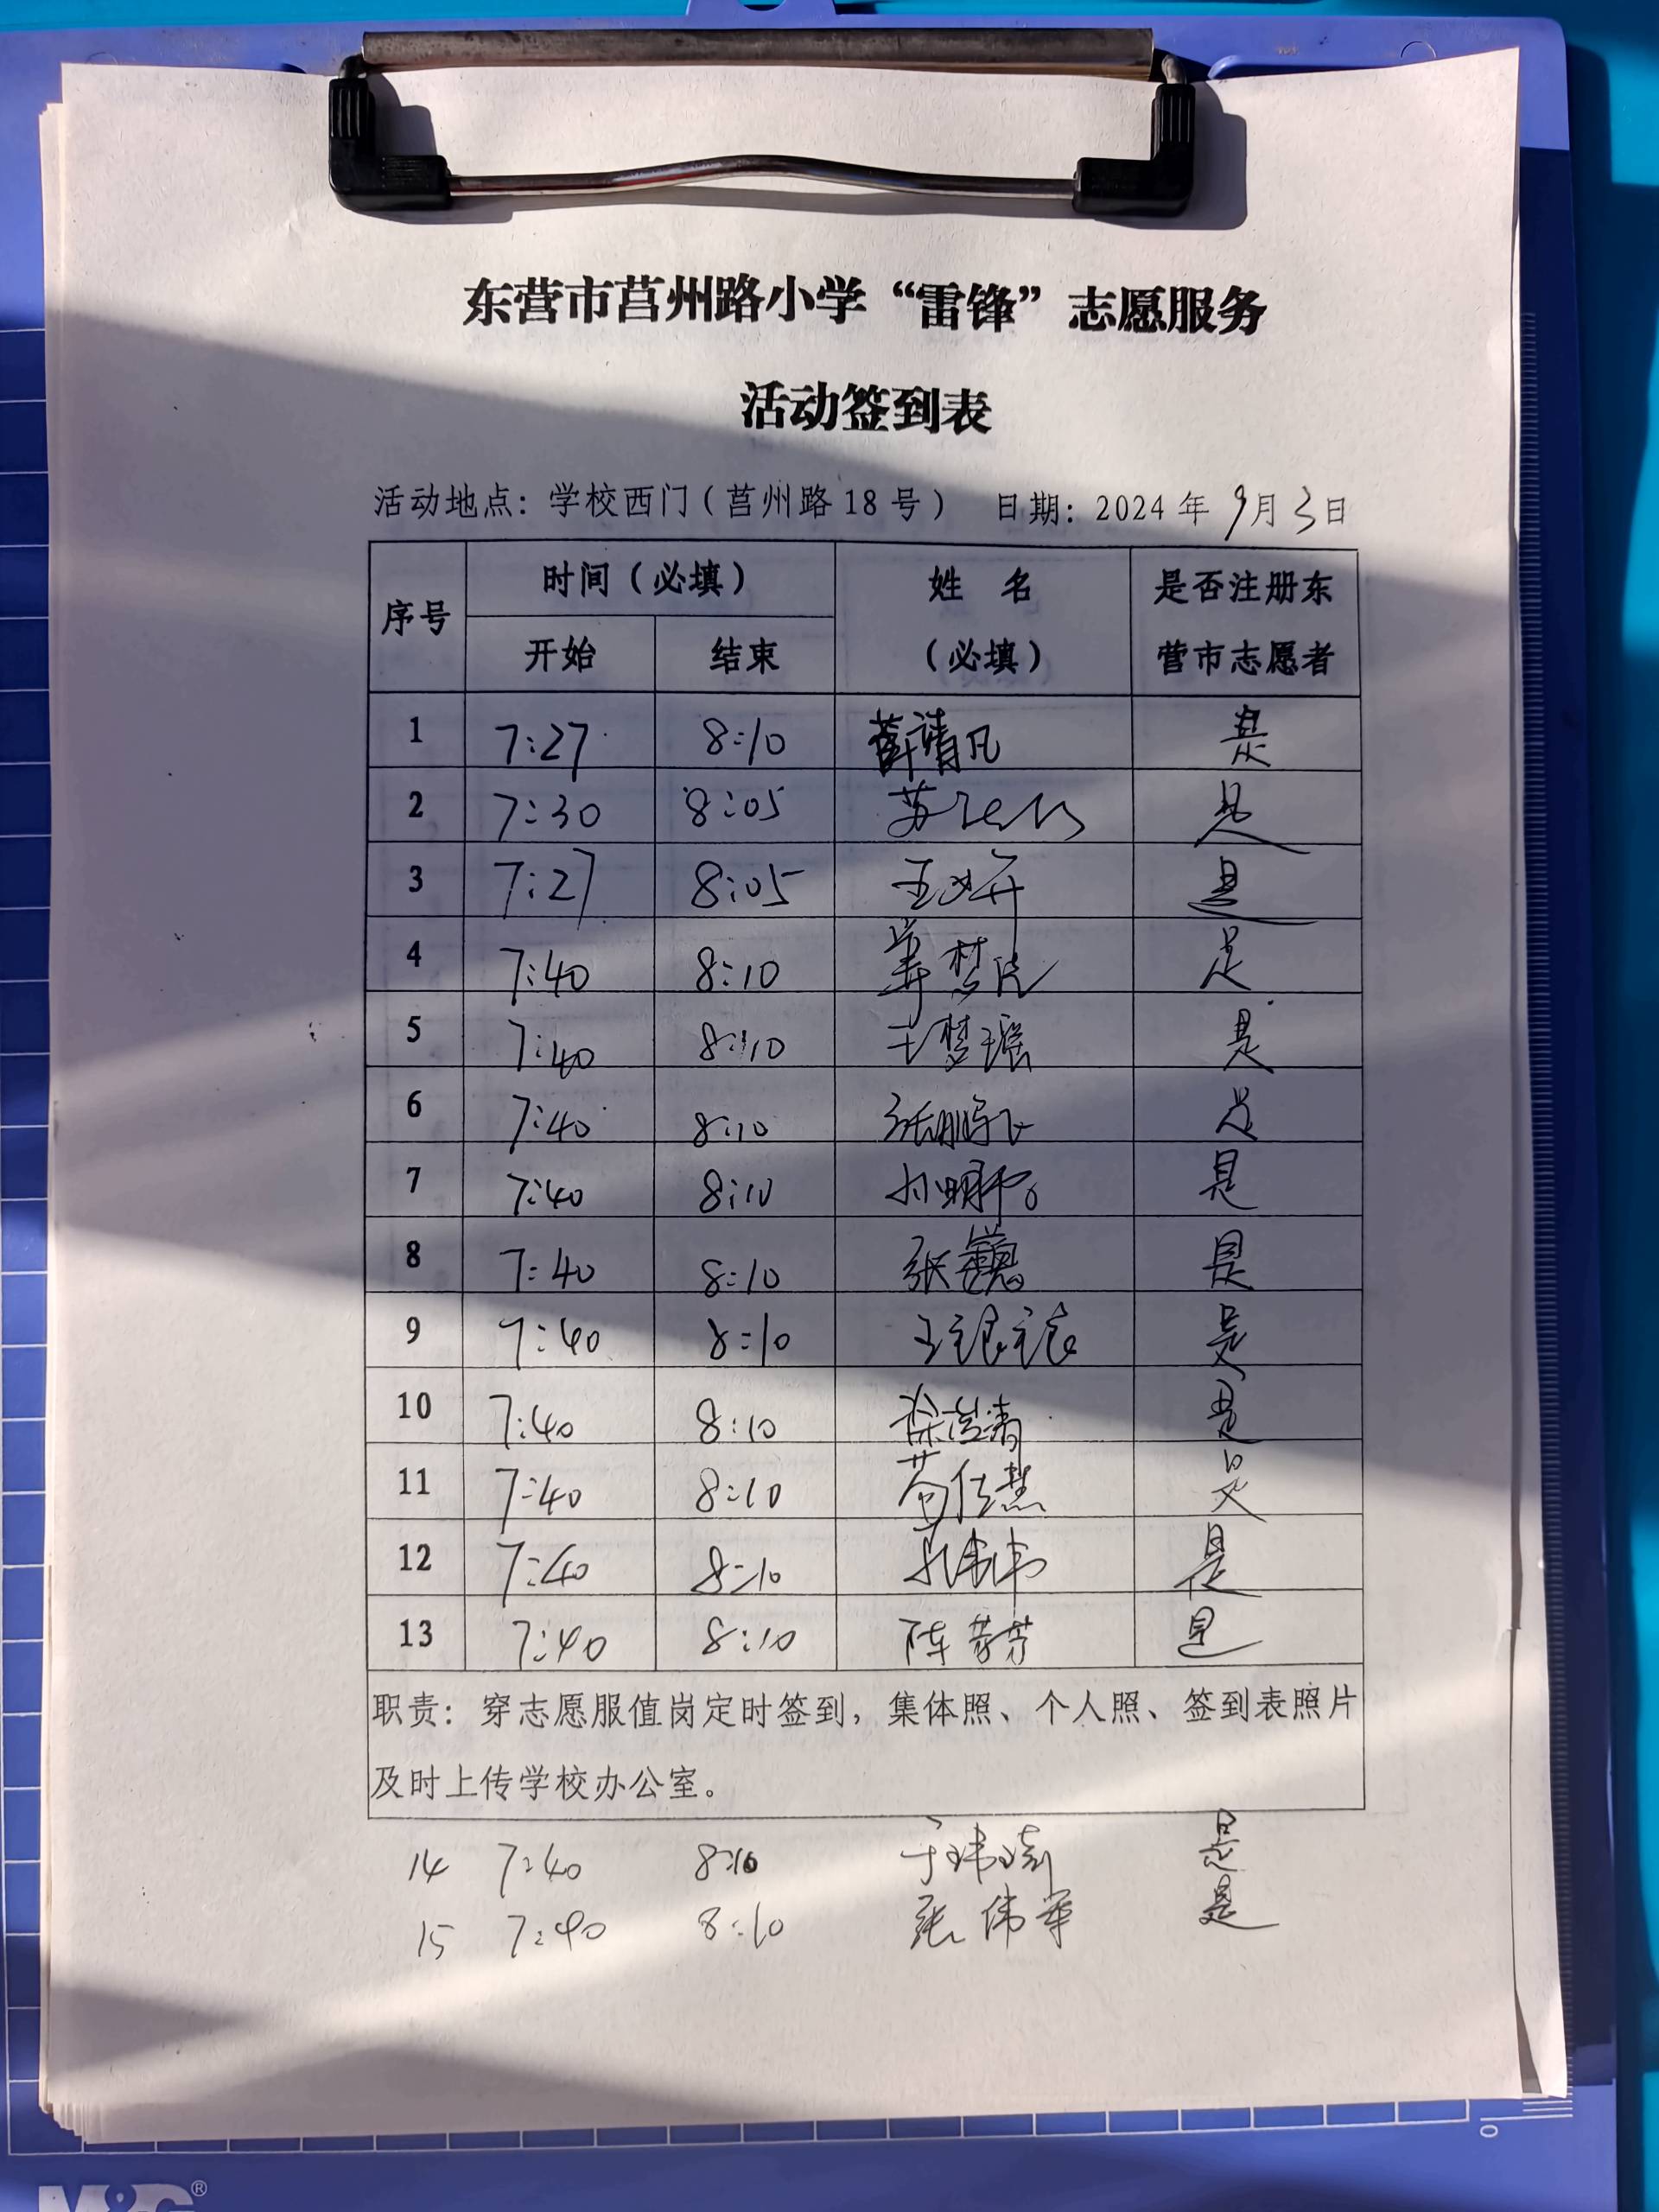 东营市莒州路小学“雷锋”志愿服务
活动签到表
活动地点：学校西门（莒州路18号） 日期：2024年9月3日
序号 时间（必填） 姓 名 是否注册东
开始 结束 （必填） 营市志愿者
1 7:27 8:10 薛靖凡 是
2 7:30 8:05 苏 是
3 7:27 8:05 王 是
4 7:40 8:10 梦 是
5 7:40 8:10 王梦瑶 是
6 7:40 8:10 张鹏飞 是
7 7:40 8:10 是
8 7:40 8:10 张 是
9 7:40 8:10 王 是
10 7:40 8:10 徐 是
11 7:40 8:10 苟佳慧 是
12 7:40 8:10 孔伟伟 是
13 7:40 8:10 陈芳芳 是
职责：穿志愿服值岗定时签到，集体照、个人照、签到表照片
及时上传学校办公室。
14 7:40 8:10 于玮琦 是
15 7:40 8:10 张伟华 是
10
M&G®